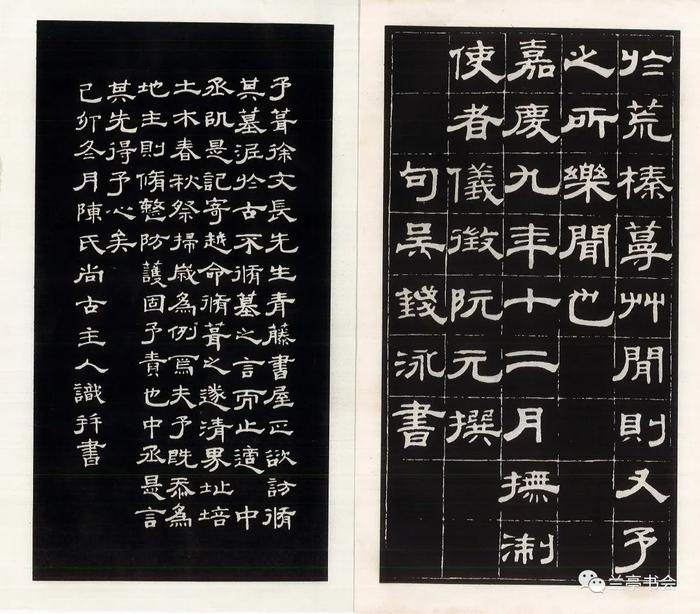 於荒榛蔓艸閒則又予
之所樂聞也
嘉慶九年十二月撫淛
使者儀徵阮元撰
句吳錢泳書
予葺徐文長先生青藤書屋正欲訪脩
其墓泥於古不脩墓之言而止適中
丞以是記寄越命脩葺之遂清界址培
土木春秋祭掃歲為例焉夫予既忝為
地主則脩整防護固予責也中丞是言
其先得予心矣
己卯冬月陳氏尚古主人識并書
兰亭书会